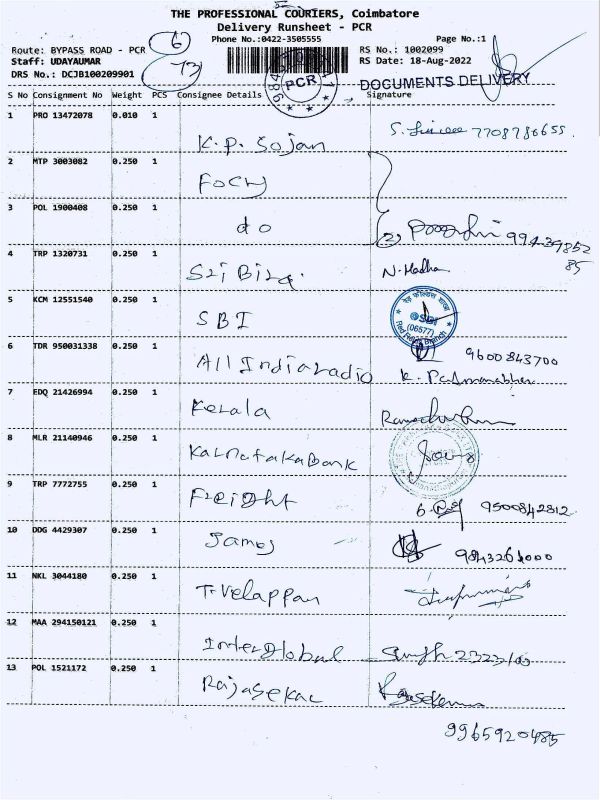 THE PROFESSIONAL COURIERS, Coimbatore
Delivery Runsheet - PCR
Phone No.:0422-3505555
Page No.:1
Route: BYPASS ROAD - PCR
6
RS No.: 1002099
Staff: UDAYAUMAR
RS Date: 18-Aug-2022
DRS No.: DCJB100209901
73
PCR
DOCUMENTS DELIVERY
S No Consignment No Weight PCS Consignee Details Signature
1 PRO 13472078 0.010 1 K.P. Sojan 7708786655
2 MTP 3003082 0.250 1
3 POL 1900408 0.250 1 do (2) 99439852
85
4 TRP 1320731 0.250 1 N. Madha
5 KCM 12551540 0.250 1 SBI
SBI
(06577)
Red Fields Branch
6 TDR 950031338 0.250 1 All India radio 9600843700
K. Padmanabhan
7 EDQ 21426994 0.250 1 Kerala
8 MLR 21140946 0.250 1 Karnataka Bank
9 TRP 7772755 0.250 1 Freight 9500842812
10 DDG 4429307 0.250 1 James 9843261000
11 NKL 3044180 0.250 1 T. Velappan
12 MAA 294150121 0.250 1 Interglobal
13 POL 1521172 0.250 1 Rajasekar
9965920485